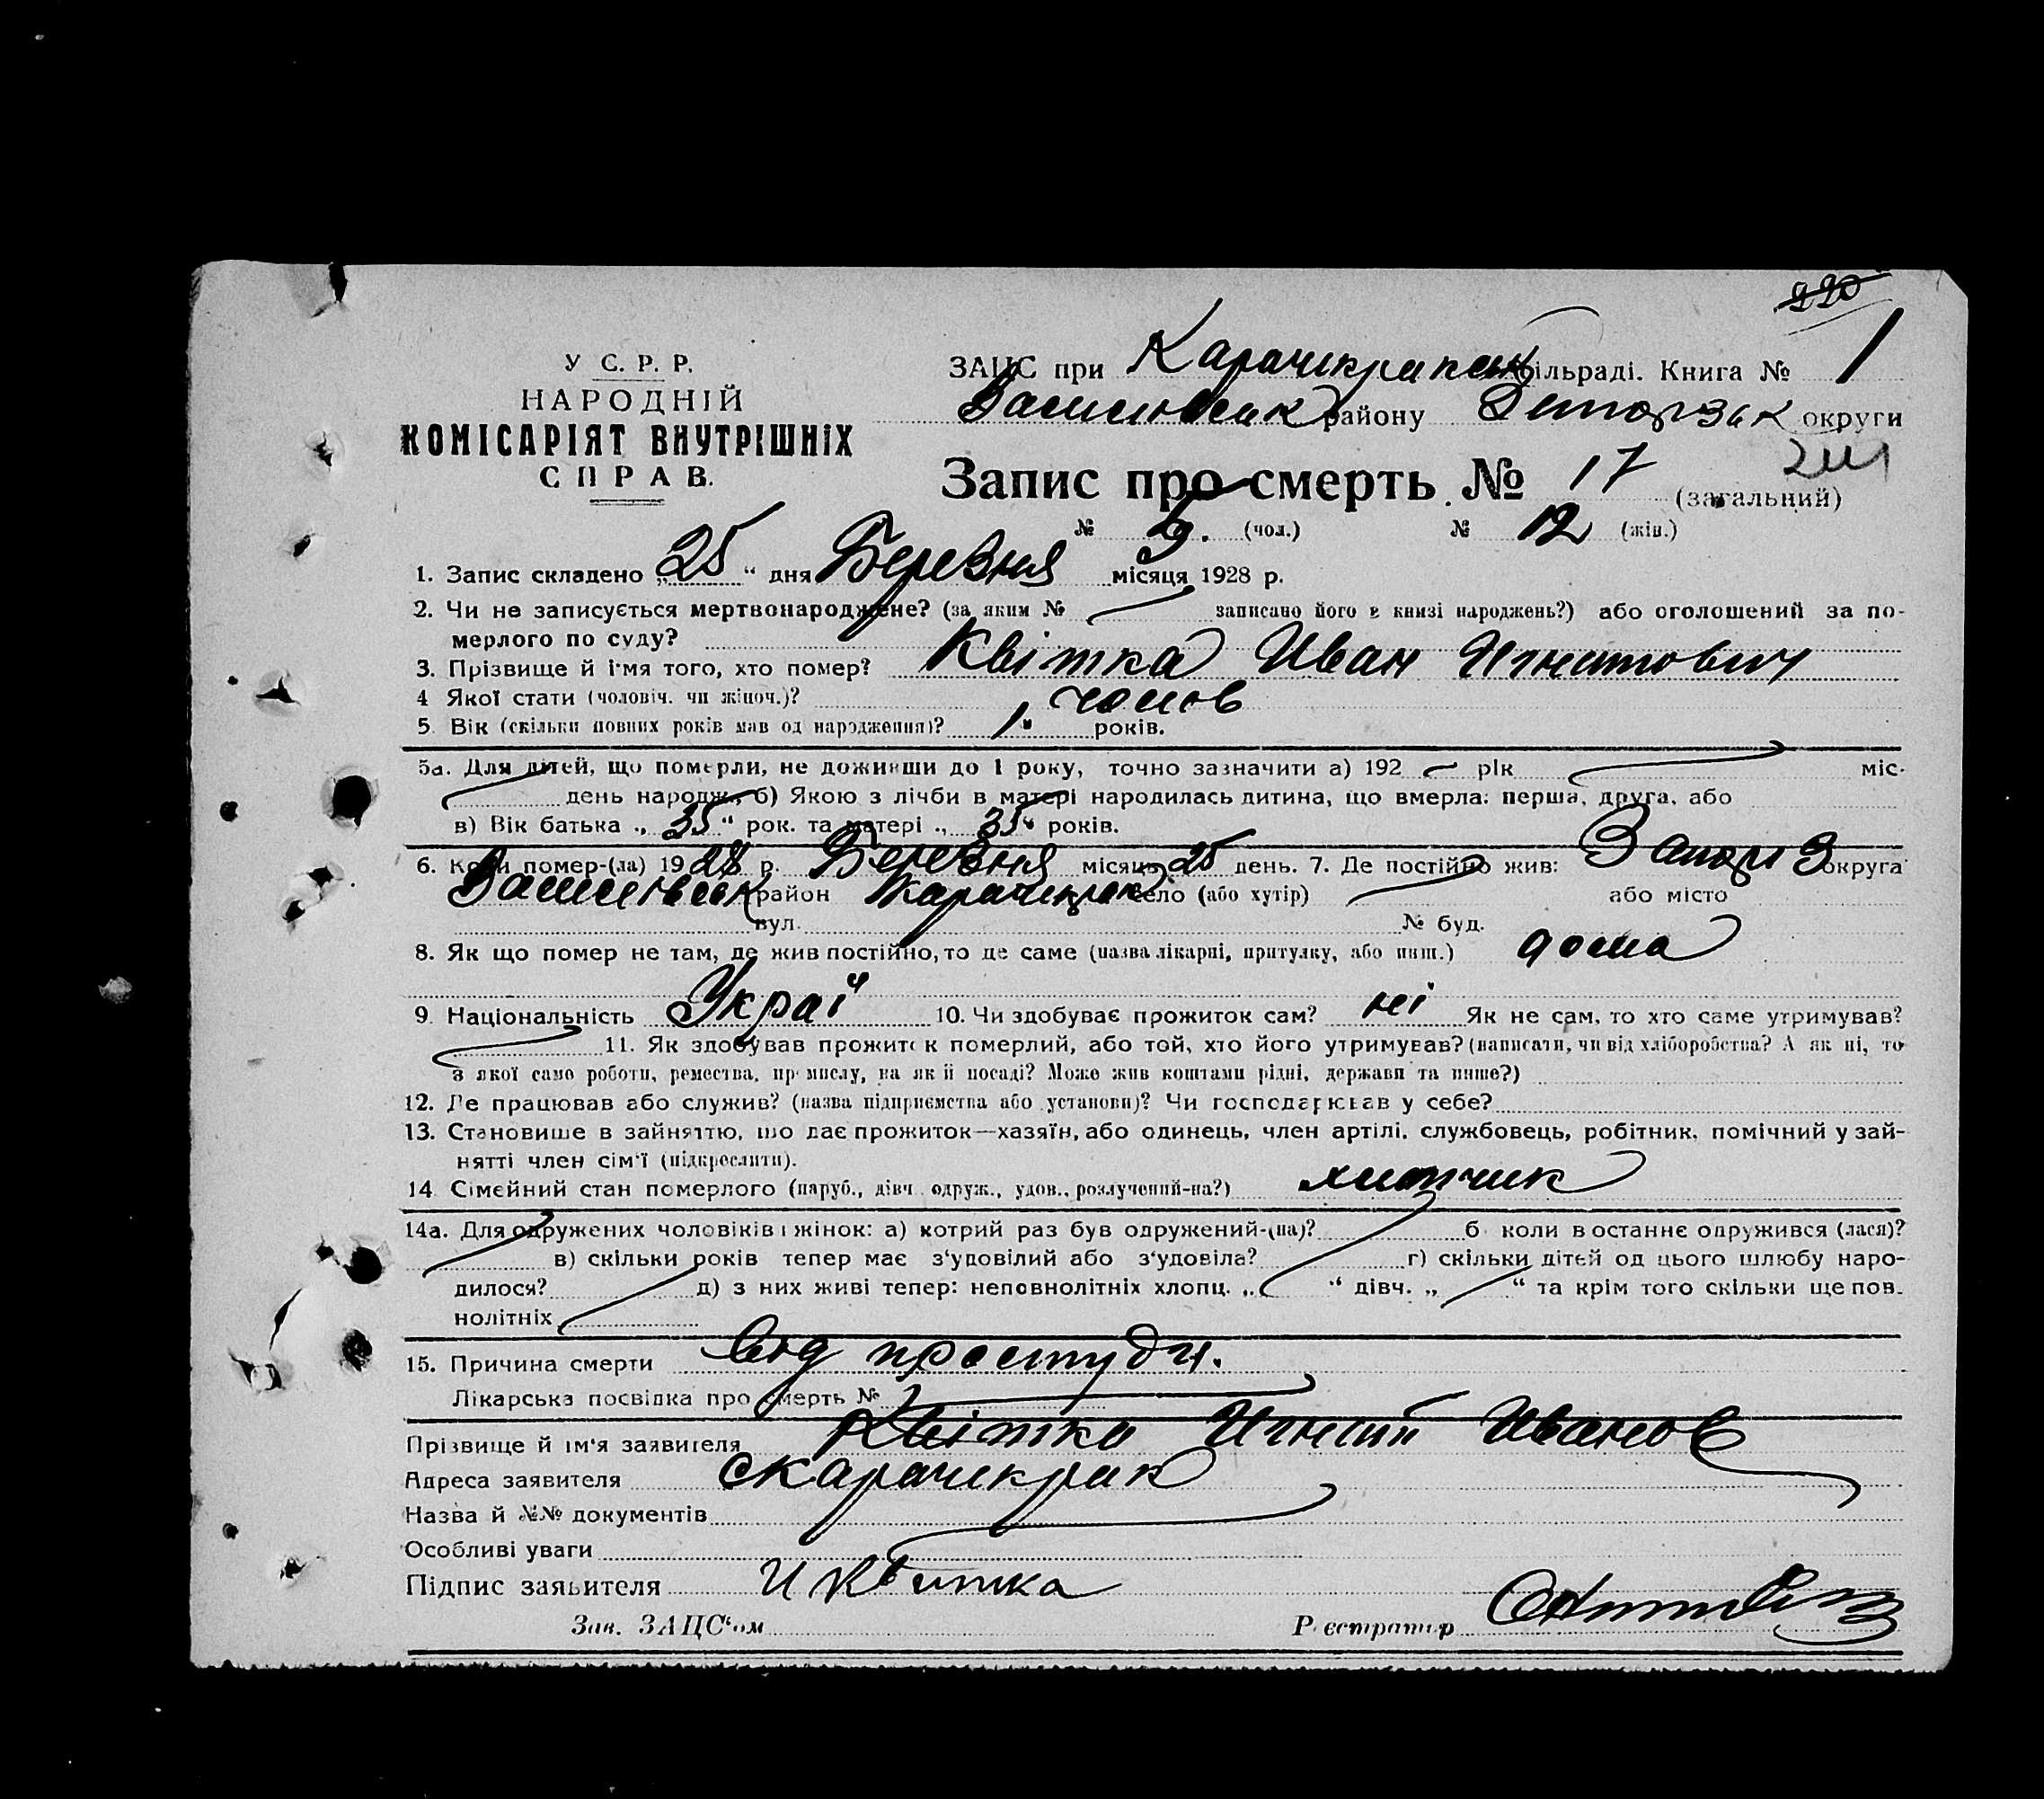 220
У С. Р. Р.
НАРОДНІЙ
КОМІСАРІЯТ ВНУТРІШНІХ
СПРАВ.
ЗАЦС при Карачикракськ сільраді. Книга № 1
Василівськ району округи
Запис про смерть № 17 (загальний)
№ 5. (чол.) № 12 (жін.)
1. Запис складено „25“ дня Березня місяця 1928 р.
2. Чи не записується мертвонароджене? (за яким № записано його в книзі народжень?) або оголошений за по-
мерлого по суду?
3. Прізвище й ім'я того, хто помер? Квітка Иван Игнатович
4 Якої стати (чоловіч. чи жіноч.)? чолов
5. Вік (скільки повних років мав од народження)? 1 років.
5а. Для дітей, що померли, не доживши до 1 року, точно зазначити а) 192 рік міс.
день народж., б) Якою з лічби в матері народилась дитина, що вмерла: перша, друга, або
в) Вік батька „35“ рок. та матері „35“ років.
6. Коли помер-(ла) 1928 р. Березня місяць 25 день. 7. Де постійно жив: Запоріз округа
Василівськ район Карачикрак село (або хутір) або місто
вул. № буд.
8. Як що помер не там, де жив постійно, то де саме (назва лікарні, притулку, або инш.) дома
9. Національність Украї 10. Чи здобуває прожиток сам? ні Як не сам, то хто саме утримував?
11. Як здобував прожиток померлий, або той, хто його утримував? (написати, чи від хліборобства? А як ні, то
з якої само роботи, ремества, промислу, на якій посаді? Може жив коштами рідні, держави та инше?)
12. Де працював або служив? (назва підприємства або установи)? Чи господарював у себе?
13. Становище в зайняттю, що дає прожиток—хазяїн, або одинець, член артілі, службовець, робітник, помічний у зай-
нятті член сім'ї (підкреслити).
14. Сімейний стан померлого (паруб., дівч., одруж., удов., розлучений-на?) хлопчик
14а. Для одружених чоловіків і жінок: а) котрий раз був одружений-(на)? б коли в останнє одружився (лася)?
в) скільки років тепер має з'удовілий або з'удовіла? г) скільки дітей од цього шлюбу наро-
дилося? д) з них живі тепер: неповнолітніх хлопц. „ “ дівч. „ “ та крім того скільки ще пов.
нолітніх
15. Причина смерти від простуди.
Лікарська посвідка про смерть №
Прізвище й ім'я заявителя Квітка Игнат Иванов
Адреса заявителя с Карачикрак
Назва й №№ документів
Особливі уваги
Підпис заявителя И Квитка
Зав. ЗАЦС'ом Реєстратор